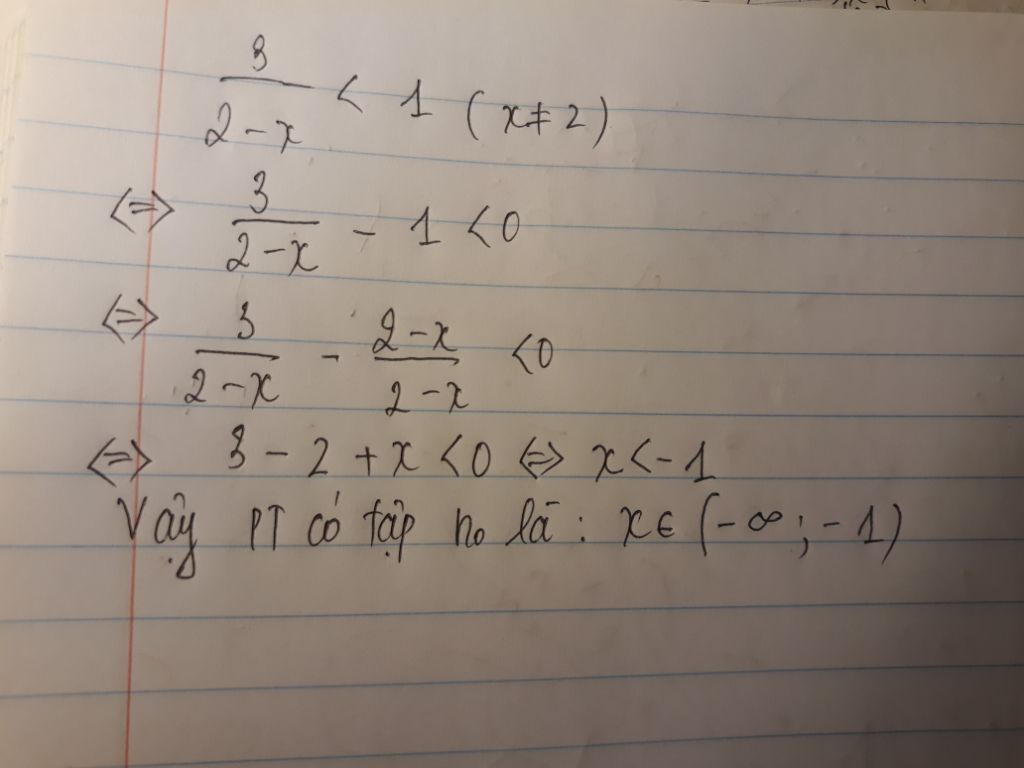 3/(2-x) < 1 (x≠2)
<=> 3/(2-x) - 1 <0
<=> 3/(2-x) - (2-x)/(2-x) <0
<=> 3 - 2 + x <0 <=> x <-1
Vậy PT có tập no là : x ∈ (-∞ ; -1)